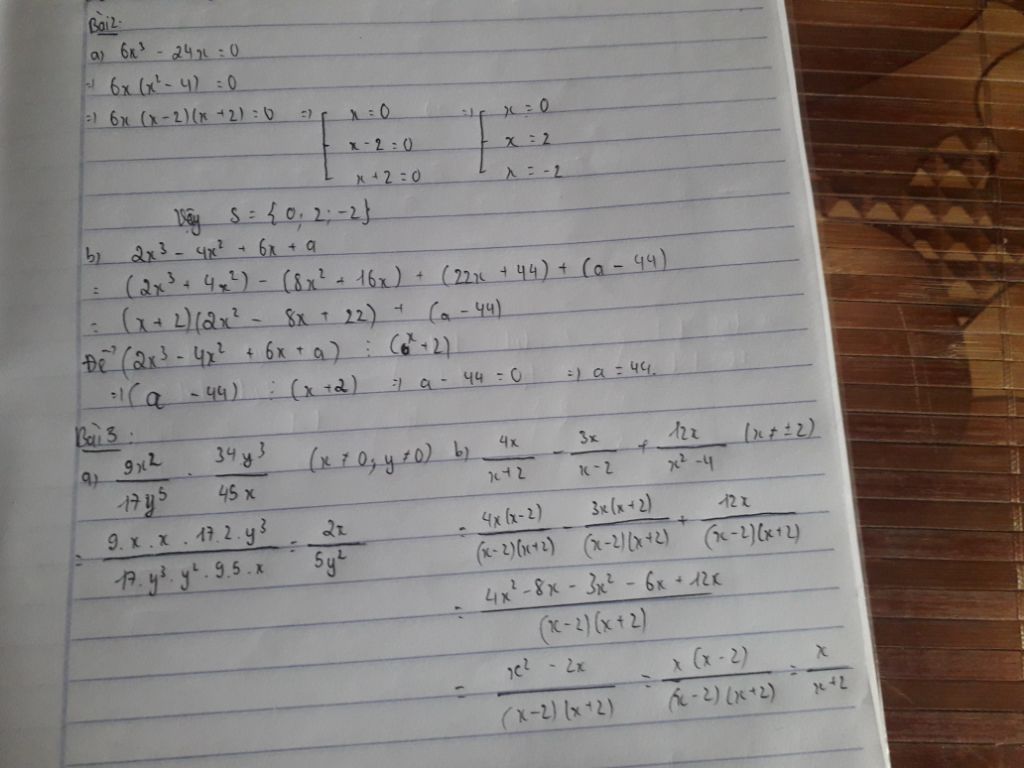 Bài 2:
a) 6x³ - 24x = 0
=> 6x(x² - 4) = 0
=> 6x(x-2)(x+2) = 0 => [ x = 0 => [ x = 0
x - 2 = 0 x = 2
x + 2 = 0 x = -2
Vậy S = {0; 2; -2}
b) 2x³ - 4x² + 6x + a
= (2x³ + 4x²) - (8x² + 16x) + (22x + 44) + (a - 44)
= (x+2)(2x² - 8x + 22) + (a - 44)
Để (2x³ - 4x² + 6x + a) ⋮ (x+2)
=> (a - 44) ⋮ (x+2) => a - 44 = 0 => a = 44.
Bài 3:
a) 9x²/17y⁵ . 34y³/45x (x ≠ 0; y ≠ 0)
= 9.x.x.17.2.y³/17.y³.y².9.5.x = 2x/5y²
b) 4x/x+2 - 3x/x-2 + 12x/x²-4 (x ≠ ±2)
= 4x(x-2)/(x-2)(x+2) - 3x(x+2)/(x-2)(x+2) + 12x/(x-2)(x+2)
= 4x² - 8x - 3x² - 6x + 12x/(x-2)(x+2)
= x² - 2x/(x-2)(x+2) = x(x-2)/(x-2)(x+2) = x/x+2